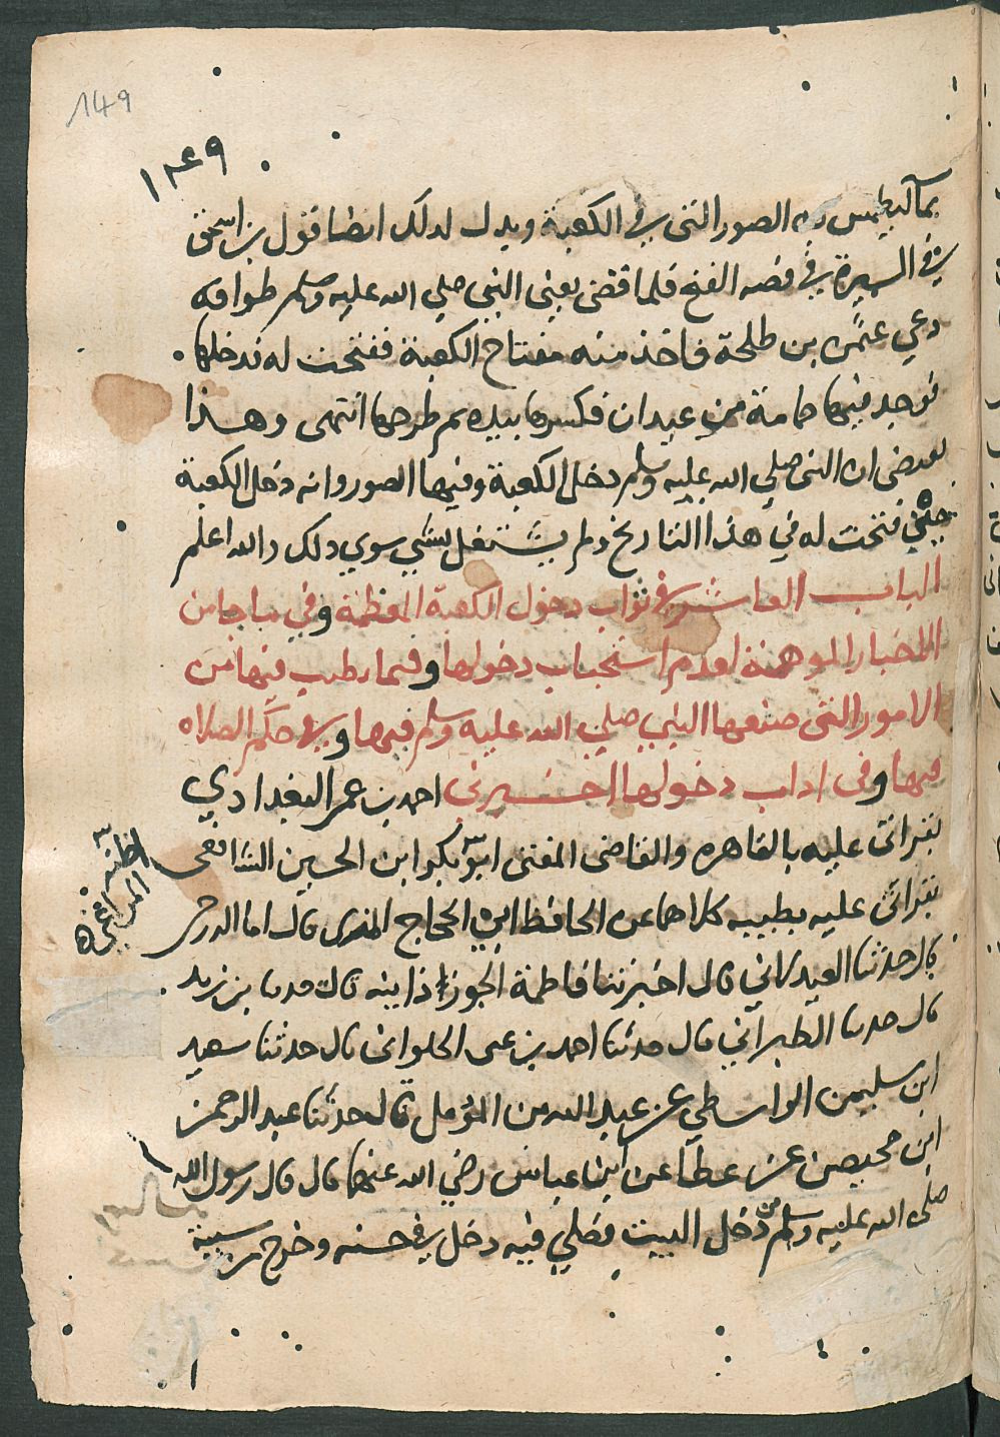 149
١٤٩
بما يطمس به الصور التي في الكعبة ويدل لدلك ايضا قول بن اسحق
في السيرة في قصه الفتح فلما قضى يعني النبي صلي الله عليه وسلم طوافه
دعي عثمن بن طلحة فاخذ منه مفتاح الكعبة ففتحت له فدخلها
فوجد فيها حمامة من عيدان فكسرها بيده ثم طرحها انتهى وهذا
يقتضى ان النبى صلي الله عليه وسلم دخل الكعبة وفيها الصور وانه دخل الكعبة
حين فتحت له في هذا التاريخ ولم يشتغل بشي سوي دلك والله اعلم
الباب العاشر في ثواب دخول الكعبة المعظمة وفي ما جا من
الاخبار الموهمة لعدم استحباب دخولها وفيما يطلب فيها من
الامور التي صنعها النبي صلي الله عليه وسلم فيها وفي حكم الصلاه
فيها وفى اداب دخولها اخبرنى احمد بن عمر البغدادي
بقراتى عليه بالقاهره والقاضى المفتى ابو بكر ابن الحسين الشافعى
بقراتى عليه بطيبه كلاهما عن الحافظ ابي الحجاج المزى قال اما الدرجى
قال حدثنا الصيدلاني قال اخبرتنا فاطمة الجوزدانيه قالت حدثنا بن زيد
قال حدثنا الطبراني قال حدثنا احمد بن يحى الحلوانى قال حدثنا سعيد
ابن سليمن الواسطي عن عبد الله بن المؤمل قال حدثنا عبد الرحمن
ابن محيصن عن عطا عن ابن عباس رضي الله عنهما قال قال رسول الله
صلى الله عليه وسلم من دخل البيت فصلي فيه دخل في حسنه وخرج من سيية
اظنه
المراغي